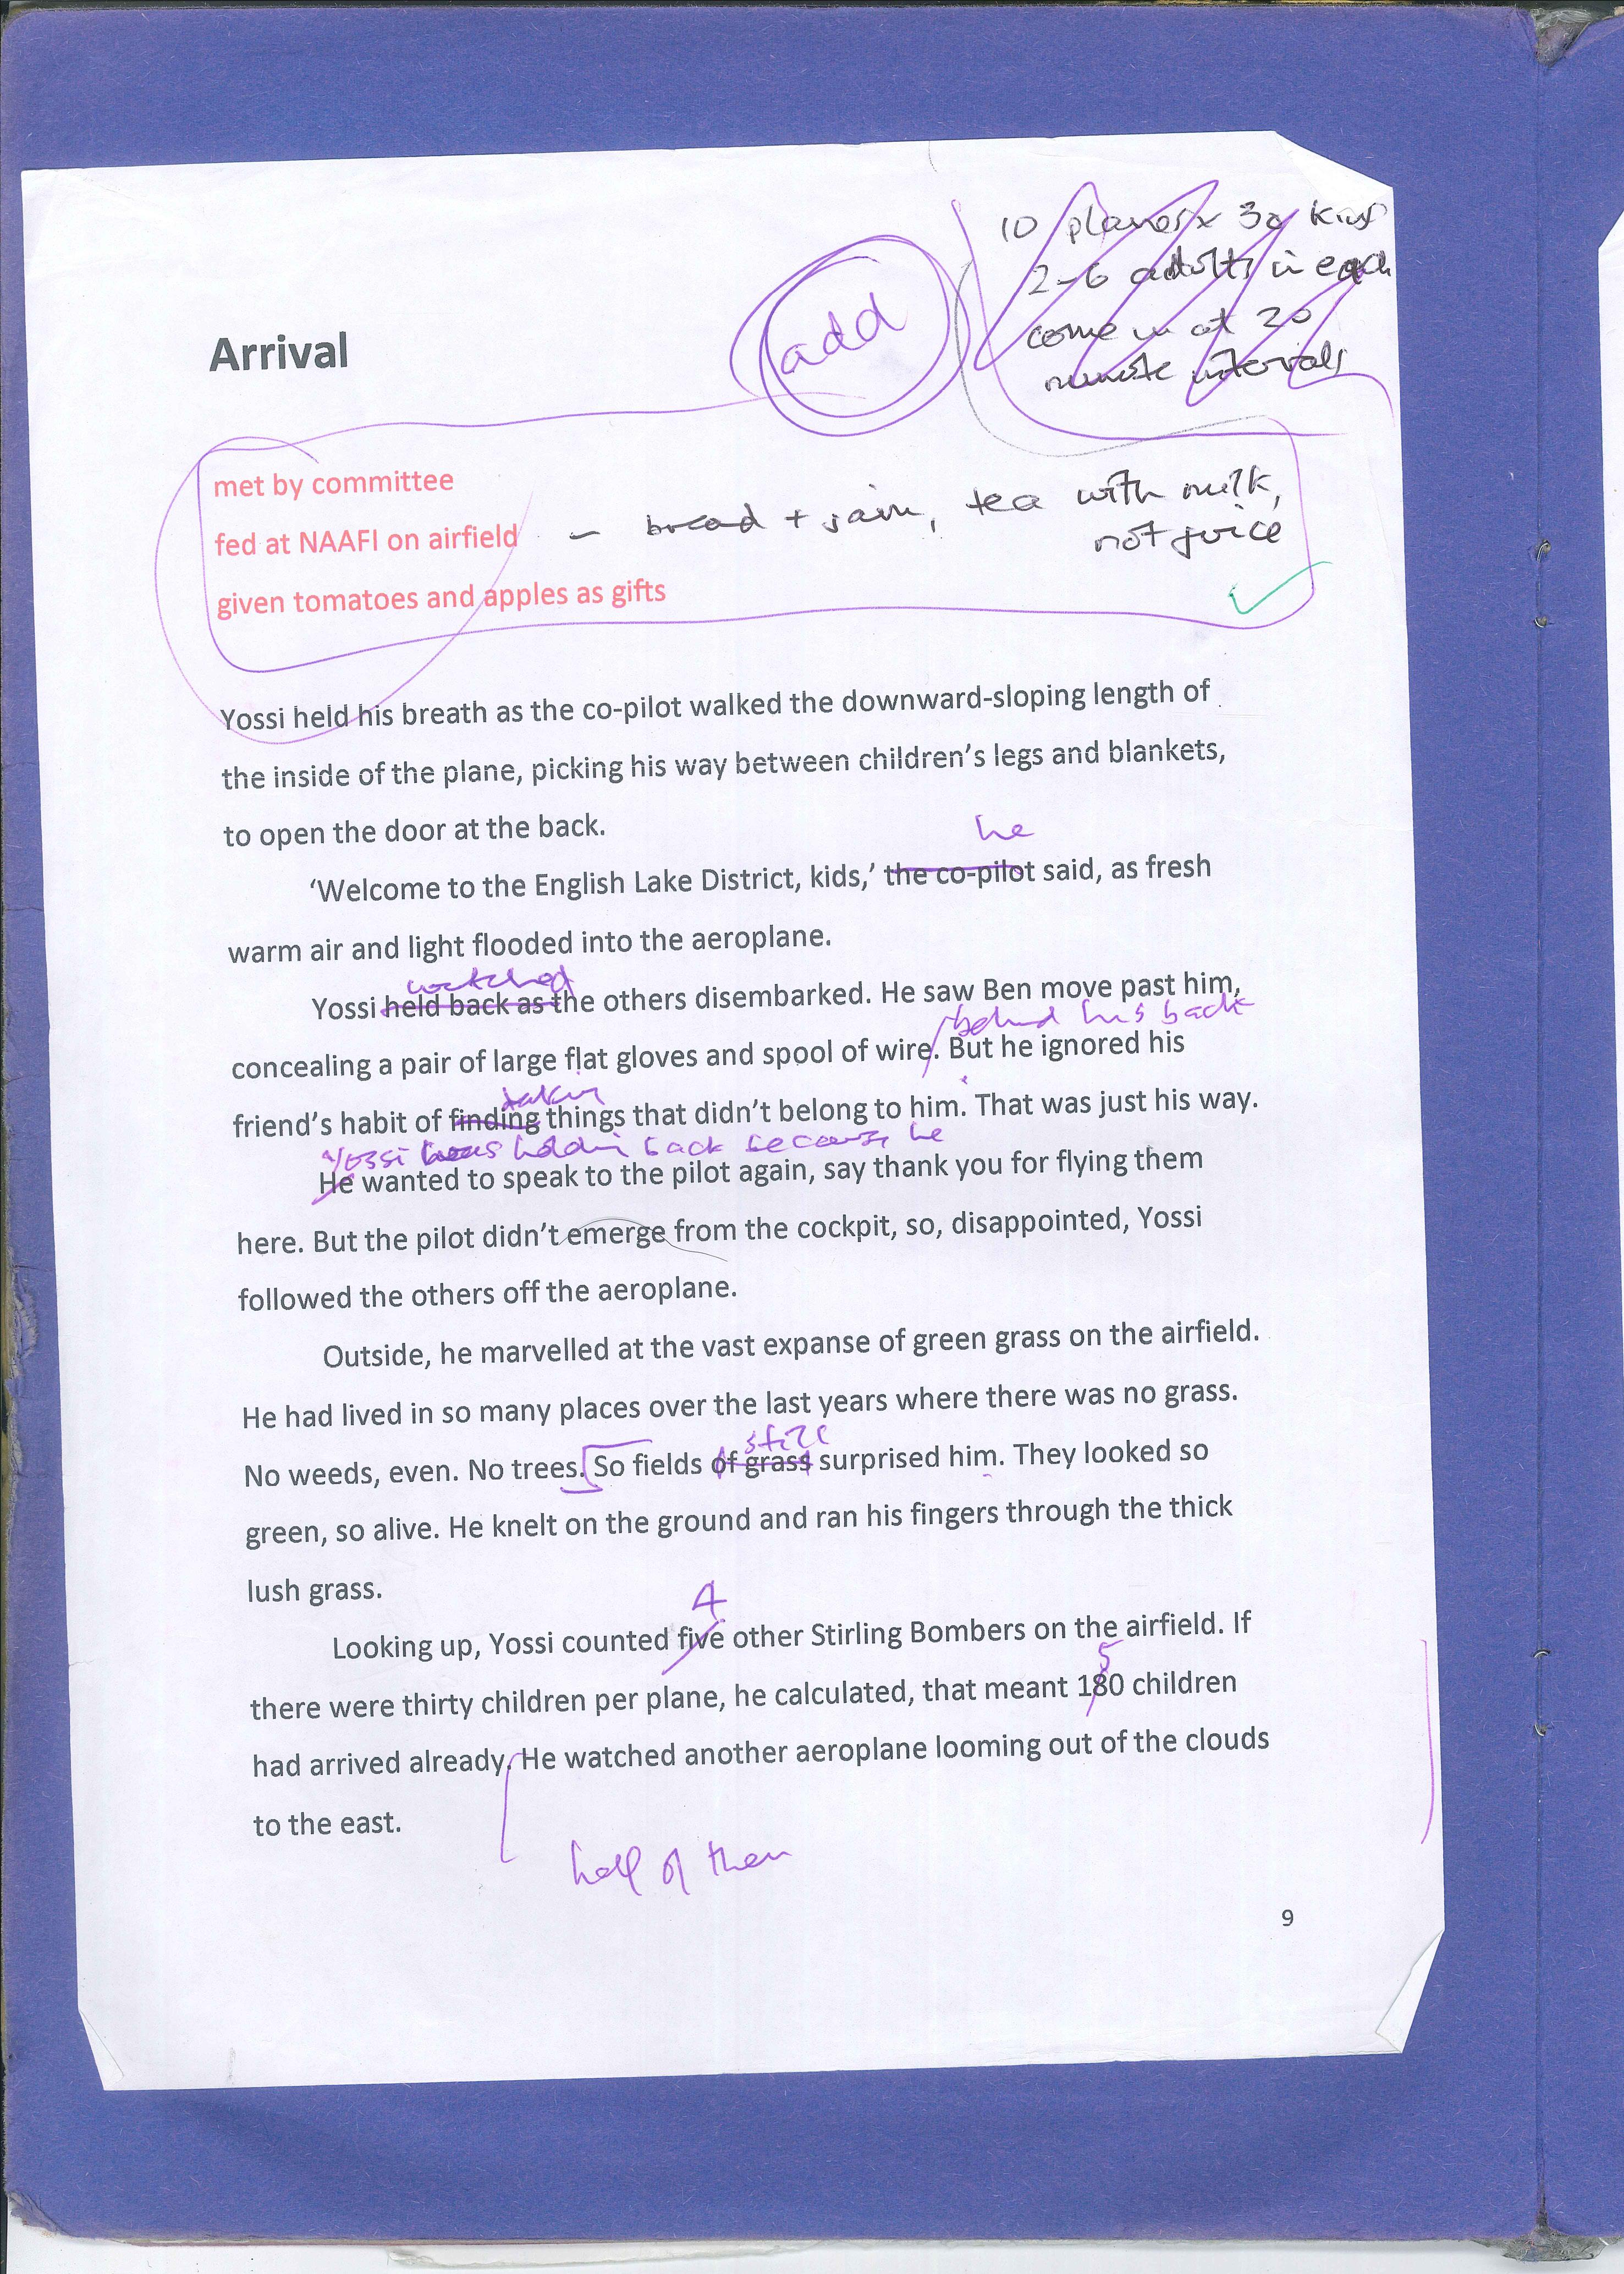 10 planes x 30 kids
2-6 adults in each
come in at 20
minute intervals
add
Arrival
met by committee
fed at NAAFI on airfield – bread + jam, tea with milk,
not juice
given tomatoes and apples as gifts
Yossi held his breath as the co-pilot walked the downward-sloping length of
the inside of the plane, picking his way between children's legs and blankets,
to open the door at the back.
he
'Welcome to the English Lake District, kids,' the co-pilot said, as fresh
warm air and light flooded into the aeroplane.
watched
Yossi held back as the others disembarked. He saw Ben move past him,
behind his back
concealing a pair of large flat gloves and spool of wire. But he ignored his
taking
friend's habit of finding things that didn't belong to him. That was just his way.
Yossi was holding back because he
He wanted to speak to the pilot again, say thank you for flying them
here. But the pilot didn't emerge from the cockpit, so, disappointed, Yossi
followed the others off the aeroplane.
Outside, he marvelled at the vast expanse of green grass on the airfield.
He had lived in so many places over the last years where there was no grass.
still
No weeds, even. No trees. So fields of grass surprised him. They looked so
green, so alive. He knelt on the ground and ran his fingers through the thick
lush grass.
4
Looking up, Yossi counted five other Stirling Bombers on the airfield. If
5
there were thirty children per plane, he calculated, that meant 180 children
had arrived already. He watched another aeroplane looming out of the clouds
to the east.
half of them
9